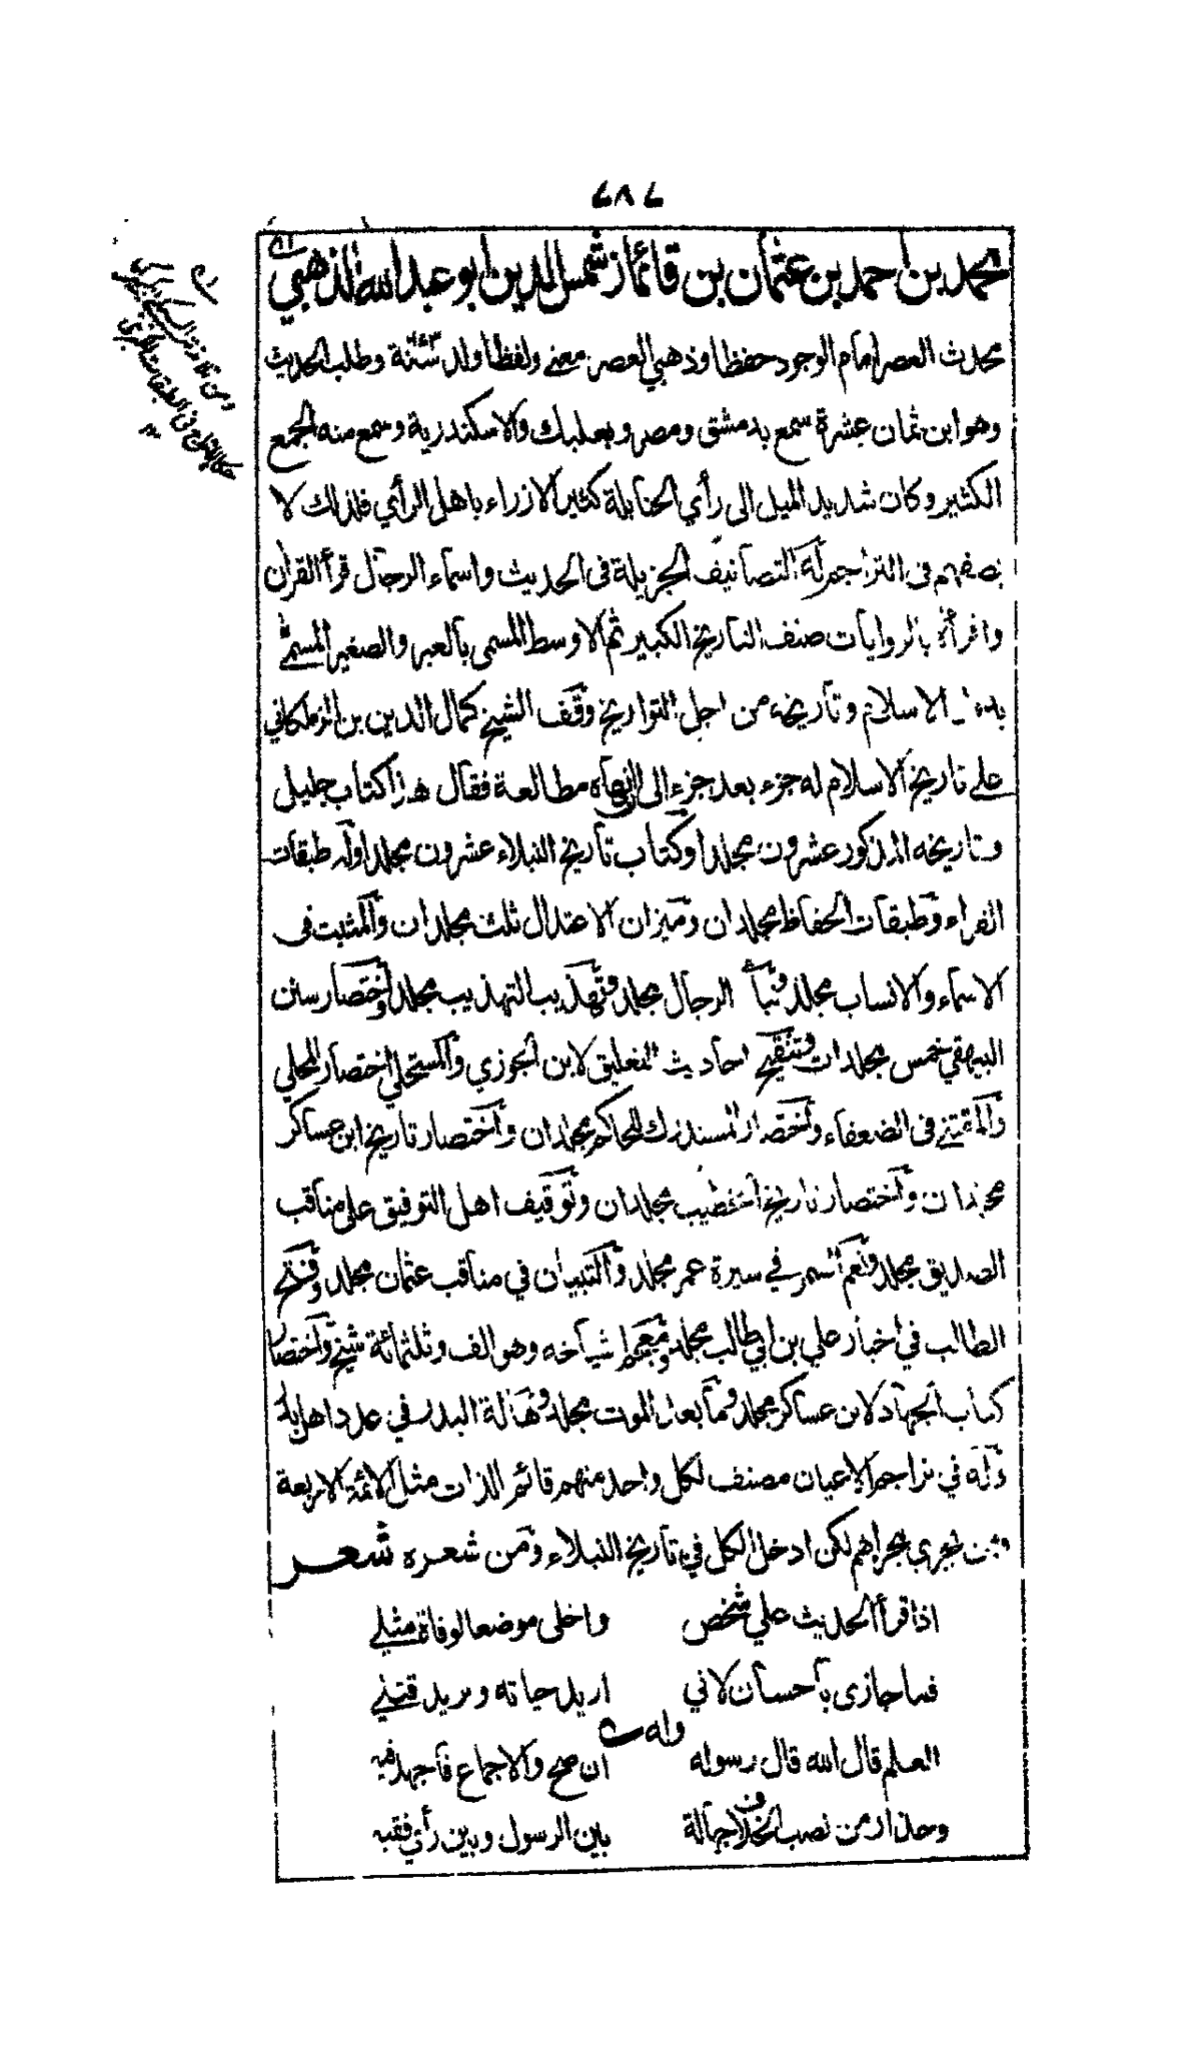 محمد بن احمد بن عثمان بن قائماز شمس الدين ابو عبد الله الذهبي
محدث العصر امام الوجود حفظا وذهبي العصر معنى ولفظا ولد سنة وطلب الحديث
وهو ابن ثمان عشرة سمع بدمشق ومصر وبعلبك والاسكندرية وسمع منه الجمع
الكثير وكان شديد الميل الى رأي الحنابلة كثير الازراء باهل الرأي فلذلك لا
ينصفهم في التراجم له التصانيف الجزيلة في الحديث واسماء الرجال قرأ القرآن
واقرأه بالروايات صنف التاريخ الكبير ثم الاوسط المسمى بالعبر والصغير المسمى
الاسلام وتاريخه من اجل التواريخ وقف الشيخ كمال الدين بن الزملكاني
على تاريخ الاسلام له جزء بعد جزء الى ان انهاه مطالعة فقال هذا كتاب جليل
وتاريخه المذكور عشرون مجلدا وكتاب تاريخ النبلاء عشرون مجلدا وله طبقات
القراء وطبقات الحفاظ مجلدان وميزان الاعتدال ثلث مجلدان والمثبت في
الاسماء والانساب مجلد ونبأ الرجال مجلد وتهذيب التهذيب مجلد واختصار سنن
البيهقي خمس مجلدات وتنقيح احاديث التعليق لابن الجوزي والمستحلى اختصار المحلى
والمقتنى في الضعفاء واختصار المستدرك للحاكم مجلدان واختصار تاريخ ابن عساكر
مجلدان واختصار تاريخ الخطيب مجلدان وتوقيف اهل التوفيق على مناقب
الصديق مجلد ونعم السمر في سيرة عمر مجلد والتبيان في مناقب عثمان مجلد وفتح
الطالب في اخبار علي بن ابي طالب مجلد ومعجم اشياخه وهو الف وثلثمائة شيخ واختصار
كتاب الجهاد لابن عساكر مجلد وما بعد الموت مجلد وهالة البدر في عدد اهل بدر
وله في تراجم الاعيان مصنف لكل واحد منهم قائم الذات مثل الائمة الاربعة
ومن يجري مجراهم لكن ادخل الكل في تاريخ النبلاء ومن شعره شعر
اذا قرأ الحديث علي شخص واخلى موضعا لوفاة مثلي
فما جازى باحسان لاني اريد حياته ويريد قتلي
وله
العلم قال الله قال رسوله ان صح والاجماع فاجهد فيه
وحذار من نصب الخلاف جهالة بين الرسول وبين رأي فقيه